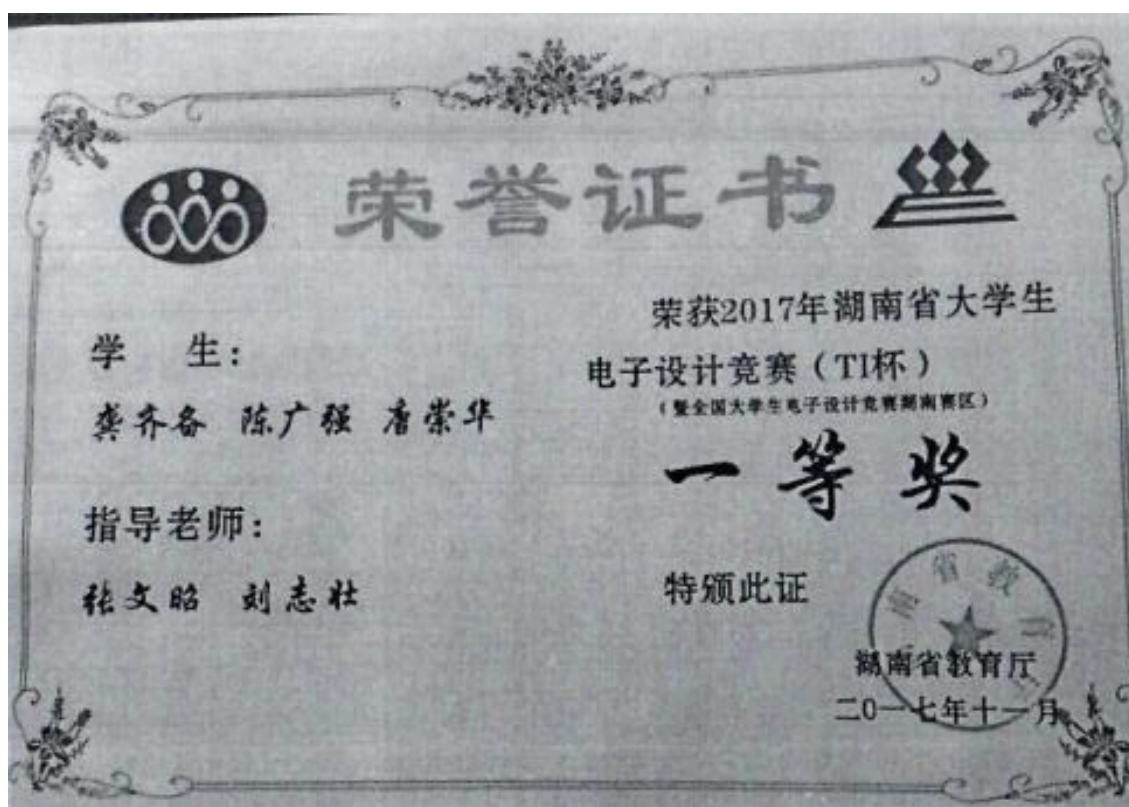 荣誉证书
学 生：
龚齐备 陈广强 唐崇华
指导老师：
张文昭 刘志壮
荣获2017年湖南省大学生
电子设计竞赛（TI杯）
（暨全国大学生电子设计竞赛湖南赛区）
一等奖
特颁此证
湖南省教育厅
二0一七年十一月
南省教育厅